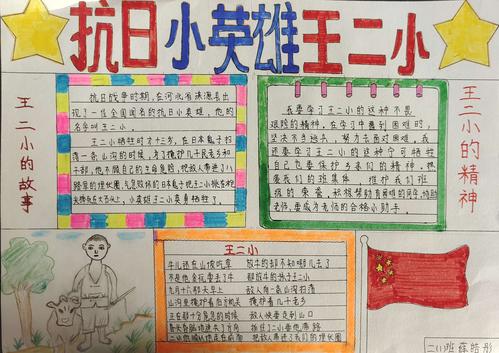 抗日小英雄王二小
王二小的故事
抗日战争时期，在河北省涞源县出
现了一位全国闻名的抗日小英雄，他的
名字叫王二小。
王二小牺牲时才十三岁，在日本鬼子扫
荡一条山沟的时候，为了掩护几千民老乡和
干部，他不顾自己的生命危险，把敌人带进了八
路军的埋伏圈，气急败坏的日本鬼子把王二小挑在枪尖
我们要学习王二小的这种不畏
艰险的精神，在学习中遇到困难时，
坚决不当逃兵，努力去面对困难，我
还要学习王二小的这种宁可牺牲
自己也要保护乡亲们的精神，热
爱我们的班集体，维护我们班
级的荣誉，积极帮助有困难的同学，协助
老师，要成为老师的合格小助手。
王二小的精神
王二小
牛儿还在山坡吃草 放牛的却不知哪儿去了
不是他贪玩耍丢了牛 那放牛的孩子王二小
九月十六那天早上 敌人向一条山沟扫荡
山沟里掩护着后方机关 掩护着几千老乡
正在那十分危急的时候 敌人快要走到山口
昏头昏脑地迷失了方向 抓住了二小要他带路
二小他顺从地走在前面 把敌人带进了我们的埋伏圈